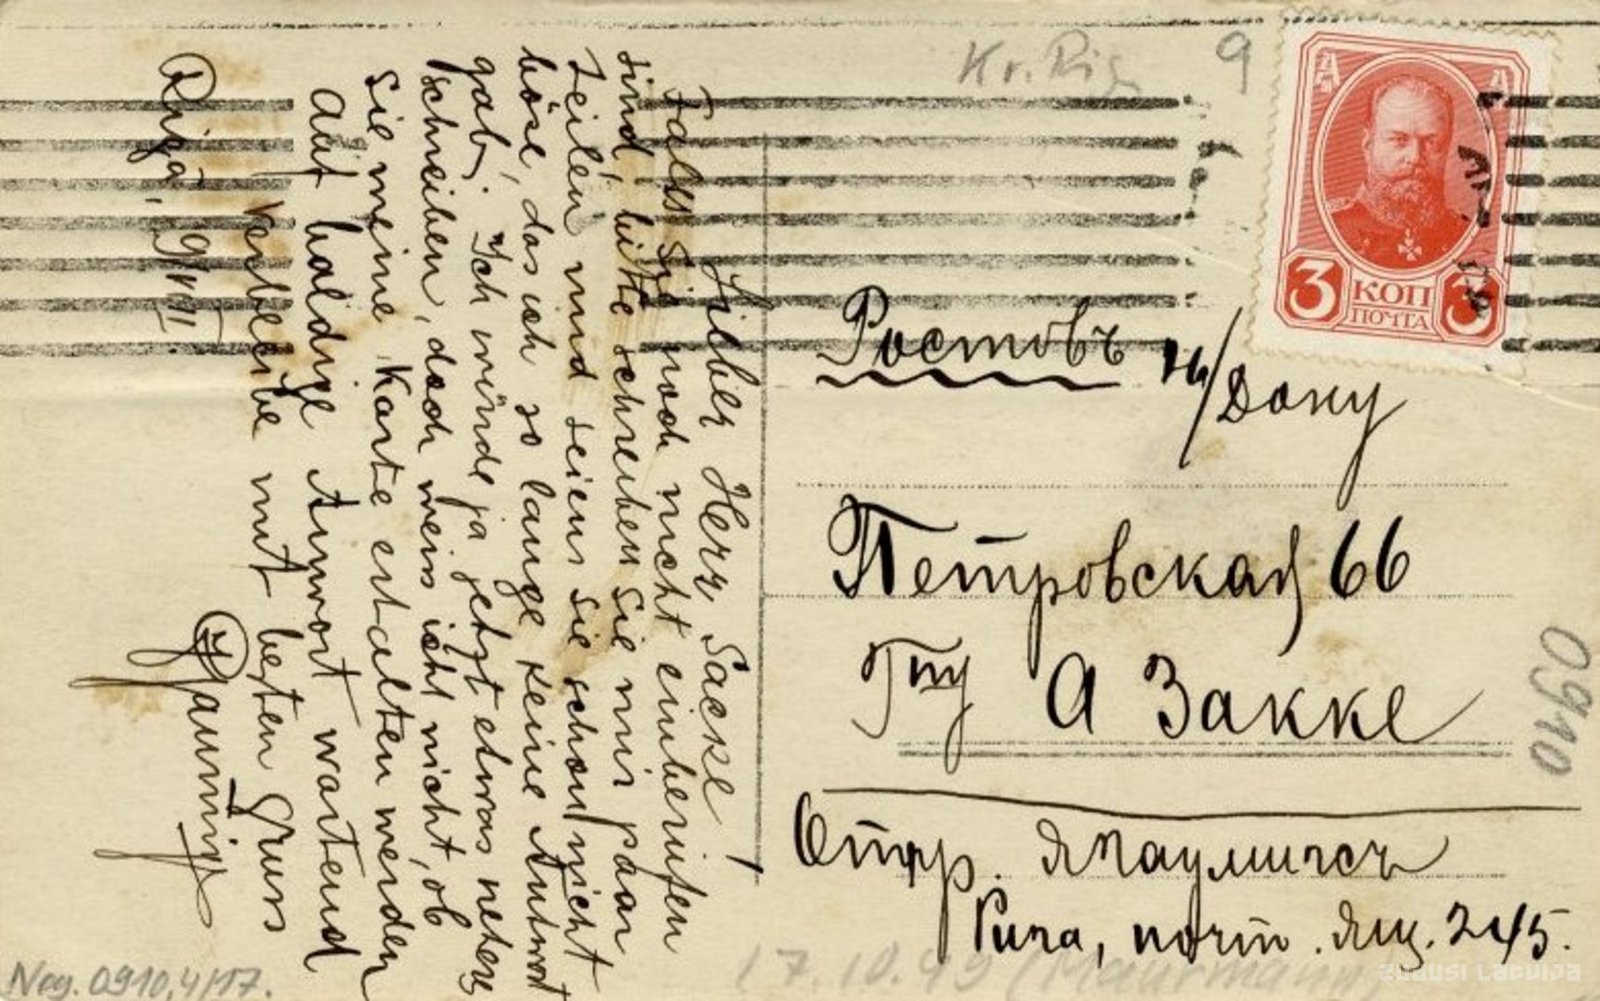 Kr. Rig. 9
3 КОП 3
ПОЧТА
Lieber Herr Sacke!
Falls Sie noch nicht einberufen
sind, bitte schreiben Sie mir paar
Zeilen und seiens Sie schon nicht
böse, das ich so lange keine Antwort
gab. Ich würde ja jetzt etwas
schreiben, doch weis icht nicht, ob
Sie meine Karte erhalten werden
Auf baldige Antwort wartend
Verbleibe mit besten Gruss
Riga, 9/VIII.
Paulmigs
Ростовъ н/Дону
Петровская 66
Гну А Закке
Отпр. Я Паулмигсъ
Рига, почт. ящ. 245.
0910
Neg. 0910,4/17.
17.10.49
ZUDUSĪ LATVIJA